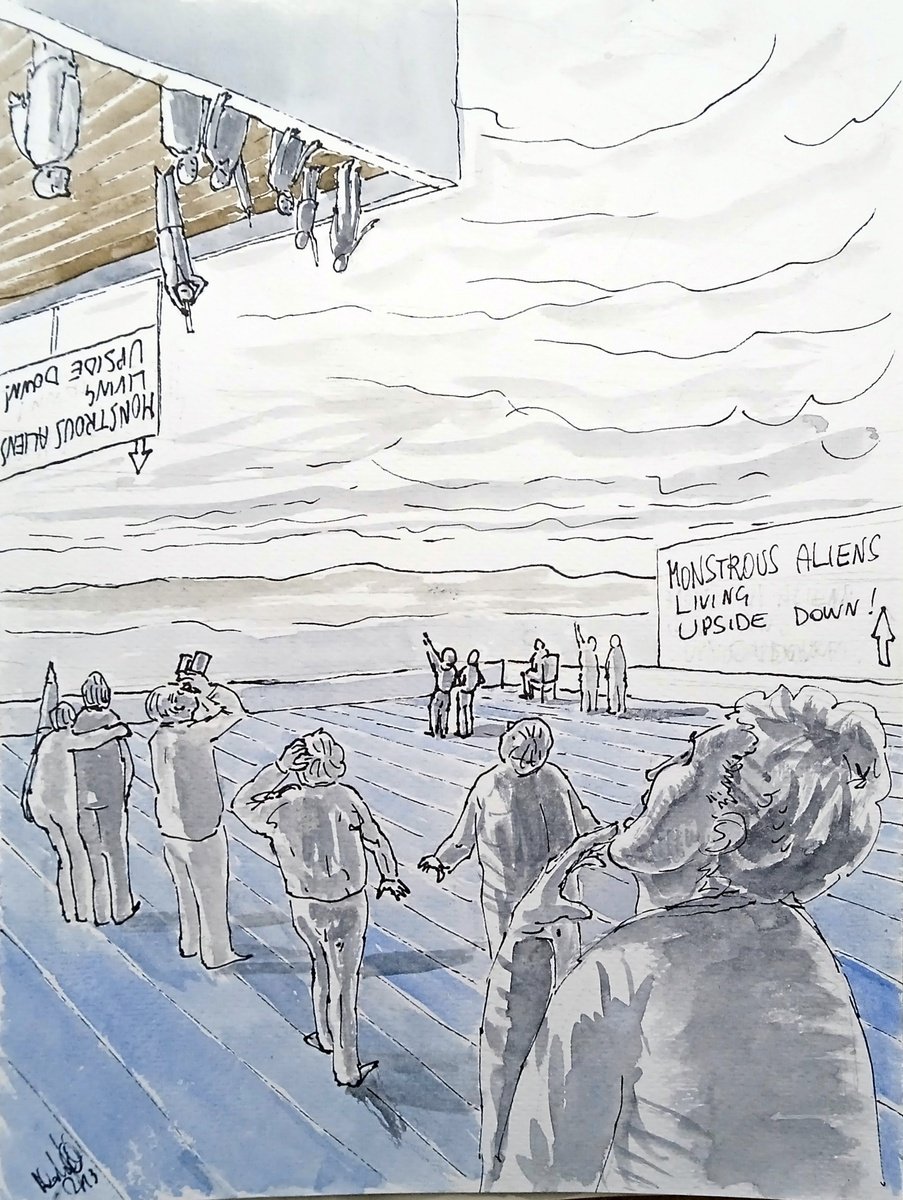 MONSTROUS ALIENS
LIVING
UPSIDE DOWN!
MONSTROUS ALIENS
LIVING
UPSIDE DOWN!